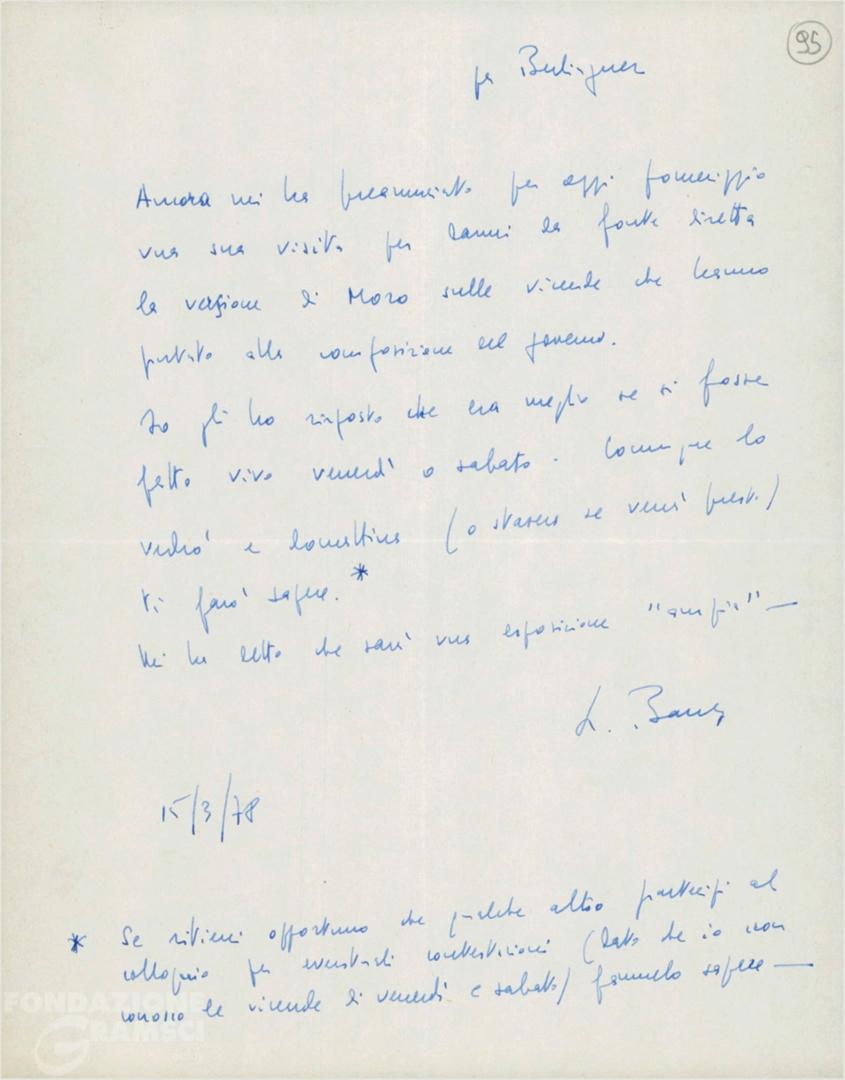 95
per Berlinguer
Ancora mi ha preannunciato per oggi pomeriggio
una sua visita per darmi da fonte diretta
la versione di Moro sulle vicende che hanno
portato alla composizione del governo.
Io gli ho risposto che era meglio se si fosse
fatto vivo venerdì o sabato. Comunque lo
vedrò e domattina (o stasera se verrà presto)
ti farò sapere. *
Mi ha detto che sarà una esposizione "ampia" —
L. Barca
15/3/78
* Se ritieni opportuno che qualche altro partecipi al
colloquio per eventuali contestazioni (dato che io non
conosco le vicende di venerdì e sabato) fammelo sapere —
FONDAZIONE
GRAMSCI